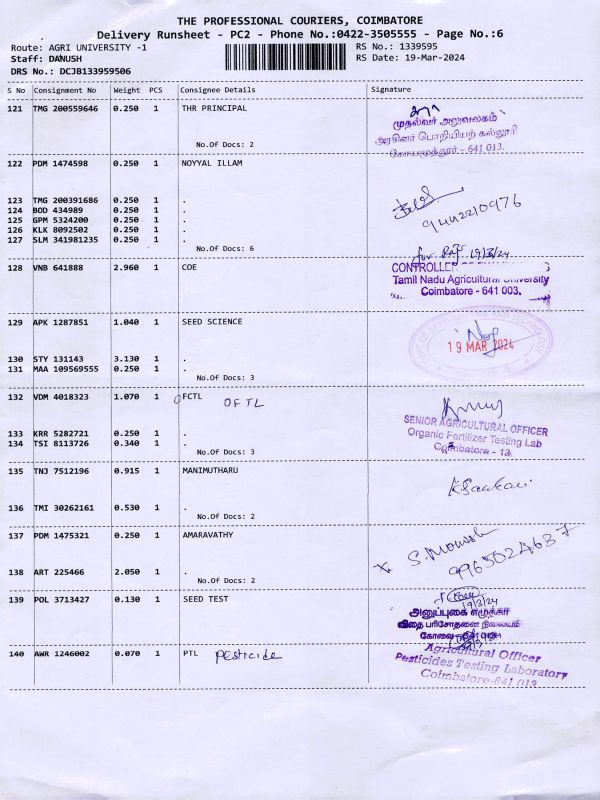 THE PROFESSIONAL COURIERS, COIMBATORE
Delivery Runsheet - PC2 - Phone No.:0422-3505555 - Page No.:6
Route: AGRI UNIVERSITY -1 RS No.: 1339595
Staff: DANUSH RS Date: 19-Mar-2024
DRS No.: DCJB133959506
S No Consignment No Weight PCS Consignee Details Signature
121 TMG 200559646 0.250 1 THR PRINCIPAL
முதல்வர் அலுவலகம்
அரசினர் பொறியியற் கல்லூரி
No.Of Docs: 2
கோயமுத்தூர் - 641 013.
122 PDM 1474598 0.250 1 NOYYAL ILLAM
123 TMG 200391686 0.250 1 .
124 BOD 434989 0.250 1 .
9442210976
125 GPM 5324200 0.250 1 .
126 KLK 8092502 0.250 1 .
127 SLM 341981235 0.250 1 .
No.Of Docs: 6
19/3/24
128 VNB 641888 2.960 1 COE
CONTROLLER
Tamil Nadu Agricultural University
Coimbatore - 641 003.
129 APK 1287851 1.040 1 SEED SCIENCE
19 MAR 2024
130 STY 131143 3.130 1 .
131 MAA 109569555 0.250 1 .
No.Of Docs: 3
132 VDM 4018323 1.070 1 FCTL
OFTL
SENIOR AGRICULTURAL OFFICER
133 KRR 5282721 0.250 1 .
Organic Fertilizer Testing Lab
134 TSI 8113726 0.340 1 .
Coimbatore - 13.
No.Of Docs: 3
135 TNJ 7512196 0.915 1 MANIMUTHARU
136 TMI 30262161 0.530 1 .
No.Of Docs: 2
137 PDM 1475321 0.250 1 AMARAVATHY
9965024637
138 ART 225466 2.050 1 .
No.Of Docs: 2
139 POL 3713427 0.130 1 SEED TEST
19/3/24
விதை பரிசோதனை நிலையம்
கோவை - 641 013
140 AWR 1246002 0.070 1 PTL Pesticide
Agricultural Officer
Pesticides Testing Laboratory
Coimbatore-641 013